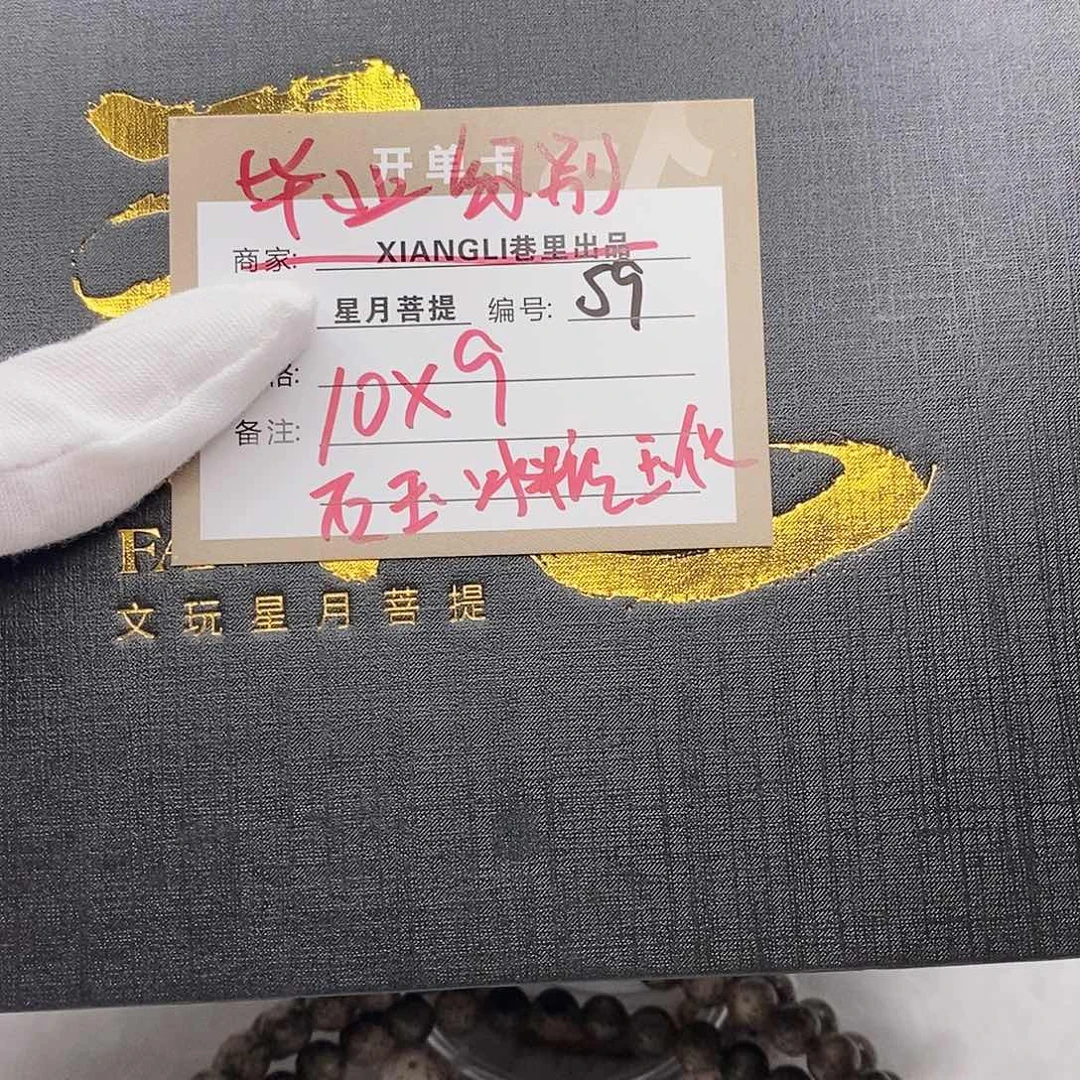 开单卡
毕业级别
商家: XIANGLI巷里出品
星月菩提 编号: 59
格:
10X9
备注:
石玉 冰糯化玉化
FA
文玩星月菩提